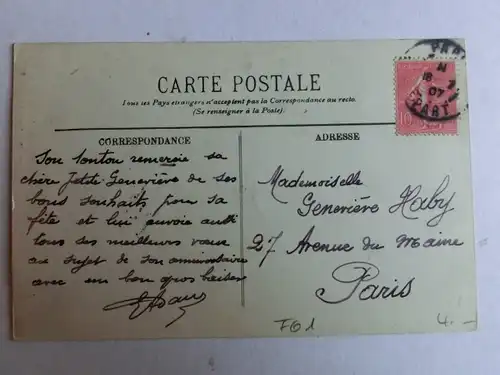 CARTE POSTALE
Tous les Pays étrangers n'acceptent pas la Correspondance au recto.
(Se renseigner à la Poste).
CORRESPONDANCE
Son tonton remercie sa
chère petite Geneviève de ses
bons souhaits pour sa
fête et lui envoie aussi
tous ses meilleurs vœux
au sujet de son anniversaire
avec un bon gros baiser
ADRESSE
Mademoiselle
Geneviève Haby
27 Avenue du Maine
Paris
PAR
18
07
DÉPART
10
T61
4.-